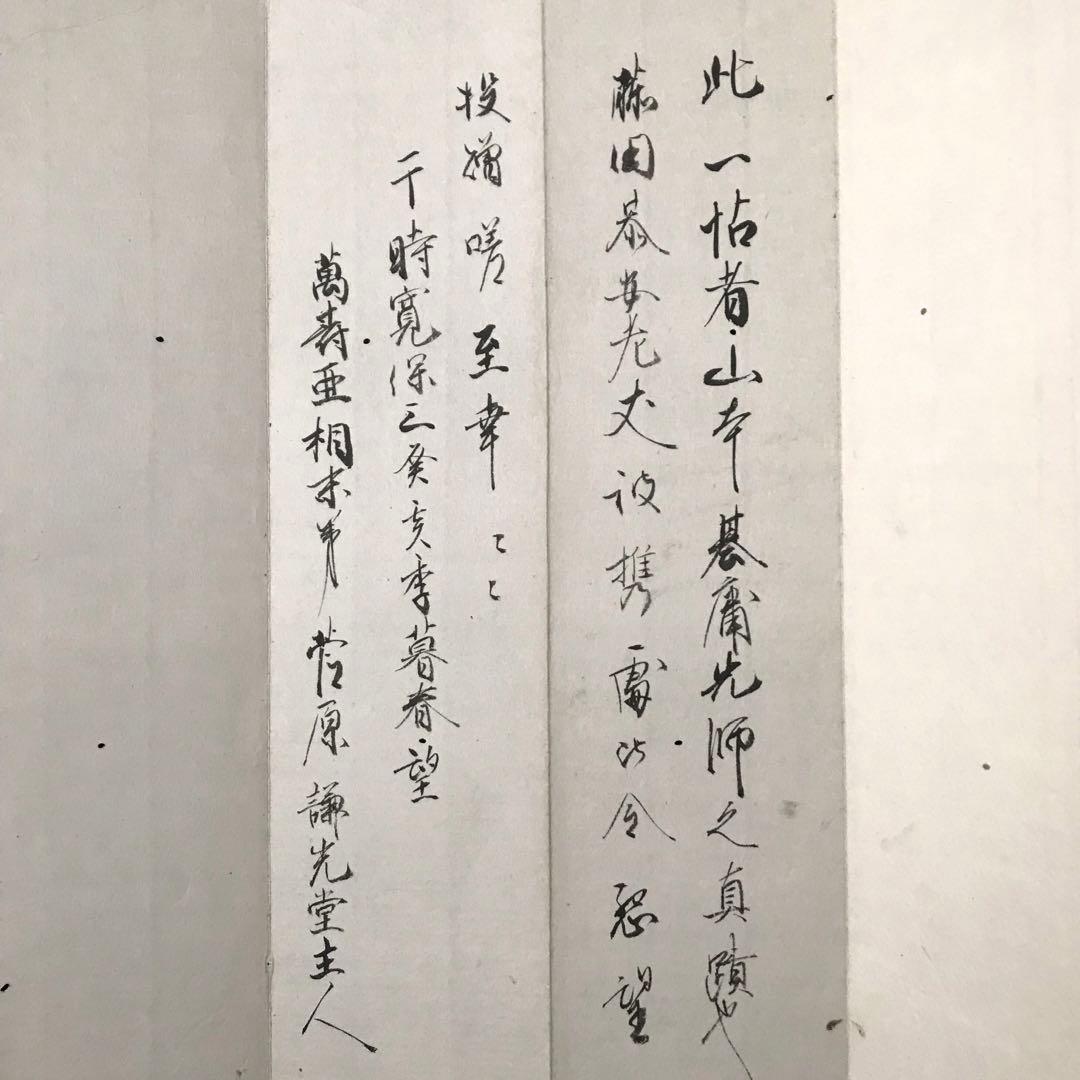 此一帖者山本基庸先師之真蹟也
藤田恭安老丈被携處以令懇望
投贈嗟至幸〻〻
于時寛保三癸亥季暮春望
萬壽亜相末弟菅原謙光堂主人